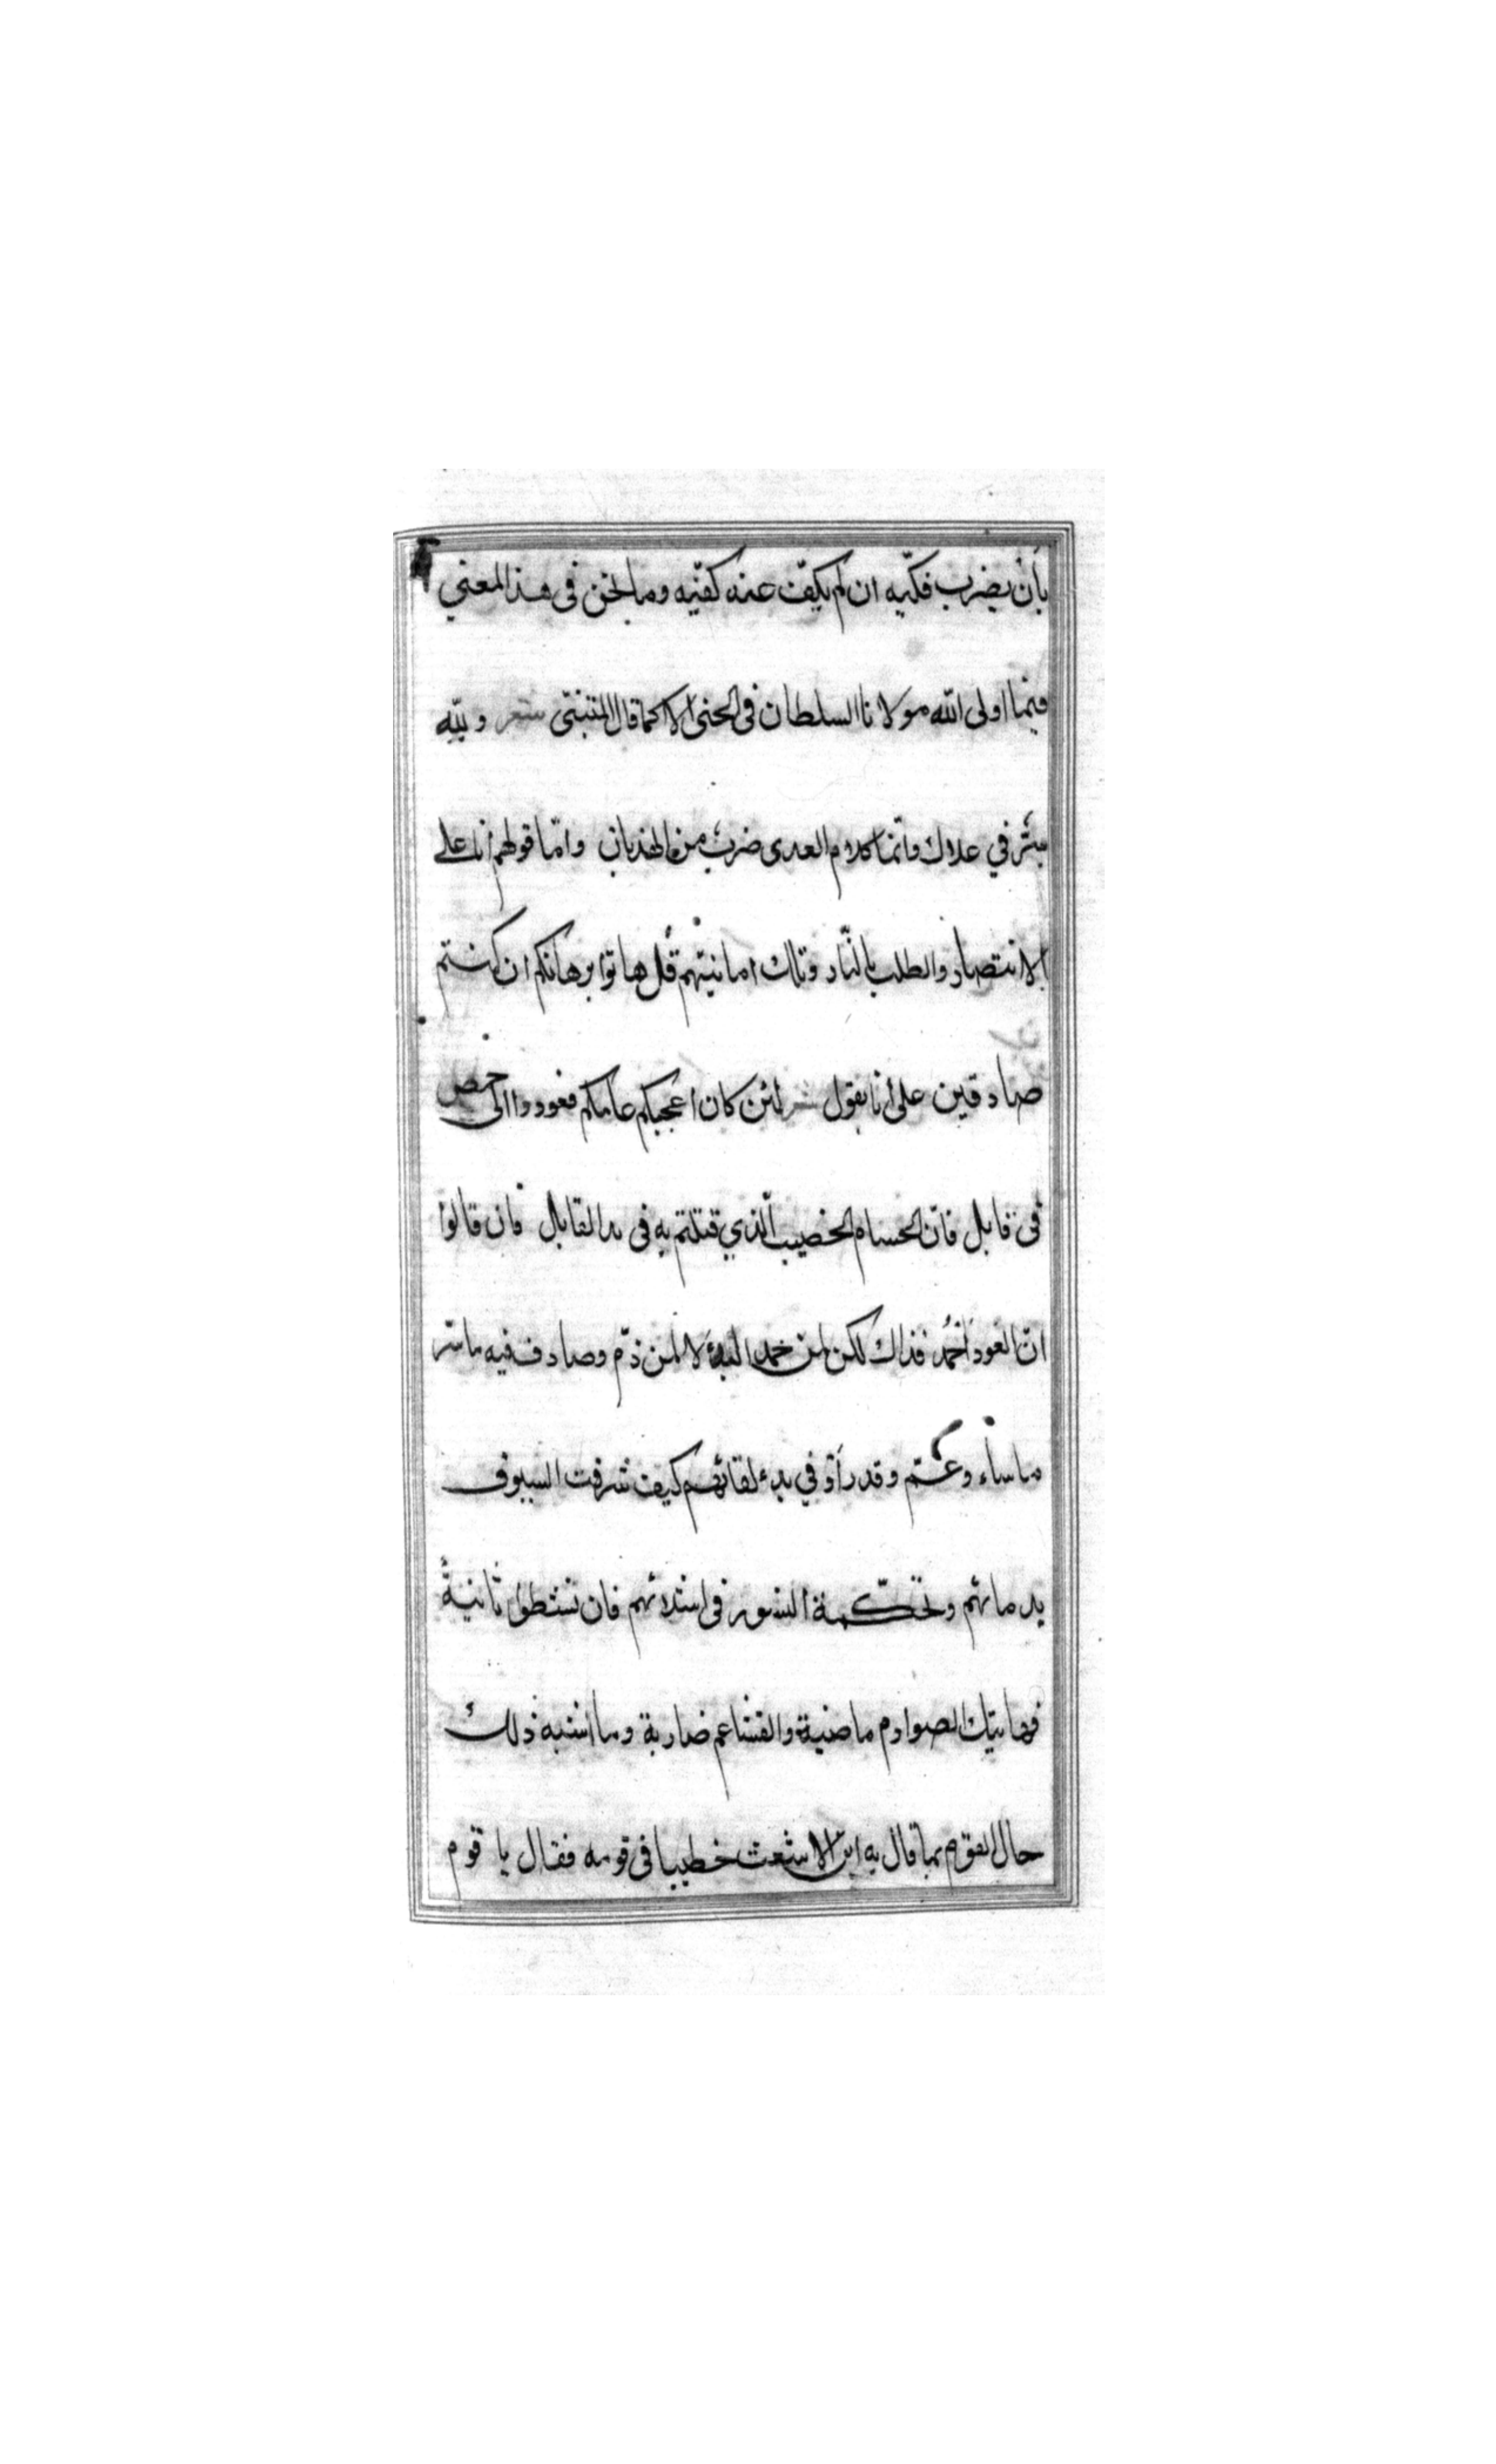 بأن يضرب فكّيه ان لم يكفّ عنه كفّيه وما نحن فى هذا المعنى
فيما اولى الله مولانا السلطان فى الحنى الا كما قال المتنبّى شعر ولله
سّر في علاك وانّما كلام العدى ضربٌ من الهذيان وامّا قولهم أنا على
الانتصار والطلب بالثّار وتلك امانيّهم قُل هاتوا برهانكم ان كنتم
صادقين على أنا نقول شعر لئن كان اعجبكم عامكم فعودوا الى حمص
فى قابل فانّ الحسام الخضيب الّذي قتلتم به فى يد القابل فان قالوا
انّ العود أحمد فذاك لكن لمن حمد البدءَ لا لمن ذمّ وصادف فيه ما سّر
ما ساء وغّم وقد رأو في بدء لقائهم كيف شرقت السيوف
بدمائهم وتحكّمة النسور فى اشلائهم فان نشطوا ثانيةً
فهاتيك الصوارم ماضية والقشاعم ضارية وما اشبه ذلك
حال القوم بما قال به ابن الاشعث خطيبا فى قومه فقال يا قوم